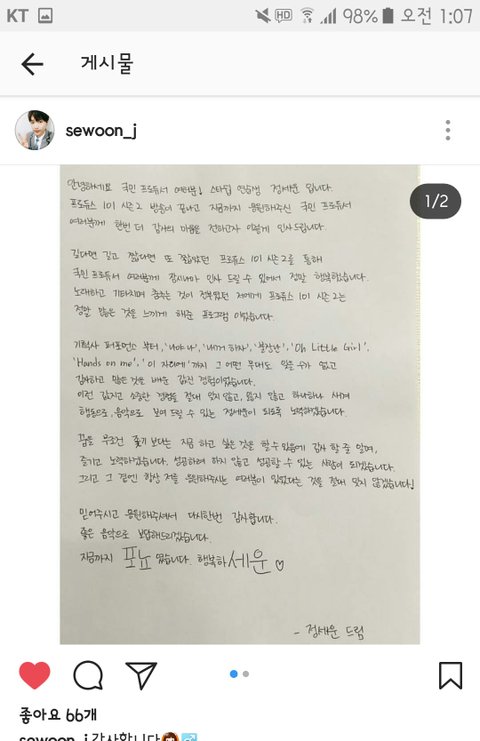 KT HD 98% 오전 1:07
게시물
sewoon_j
1/2
안녕하세요 국민 프로듀서 여러분! 스타쉽 연습생 정세운 입니다.
프로듀스 101 시즌2 방송이 끝나고 지금까지 응원해주신 국민 프로듀서
여러분께 한번 더 감사의 마음을 전하고자 이렇게 인사드립니다.
길다면 길고 짧다면 또 짧았던 프로듀스 101 시즌2를 통해
국민 프로듀서 여러분께 잠시나마 인사 드릴 수 있어서 정말 행복했습니다.
노래하고 기타치며 춤추는 것이 전부였던 저에게 프로듀스 101 시즌2는
정말 많은 것을 느끼게 해준 프로그램 이었습니다.
기획사 퍼포먼스 부터, '나야 나', '내꺼 하자', '불장난', 'Oh Little Girl',
'Hands on me', '이 자리에' 까지 그 어떤 무대도 잊을 수가 없고
감사하고 많은 것을 배운 값진 경험이었습니다.
이런 값지고 소중한 경험을 절대 잊지 않고, 잃지 않고 하나하나 새겨
행동으로, 음악으로 보여 드릴 수 있는 정세운이 되도록 노력하겠습니다.
꿈을 무조건 쫓기 보다는 지금 하고 싶은 것을 할 수 있음에 감사 할 줄 알며,
즐기고 노력하겠습니다. 성공하려 하지 않고 성공할 수 있는 사람이 되겠습니다.
그리고 그 곁엔 항상 저를 응원해주시는 여러분이 있었다는 것을 절대 잊지 않겠습니다!
믿어주시고 응원해주셔서 다시한번 감사합니다.
좋은 음악으로 보답해드리겠습니다.
지금까지 포뇨 였습니다. 행복하세운♡
- 정세운 드림
좋아요 66개
sewoon_j 감사합니다